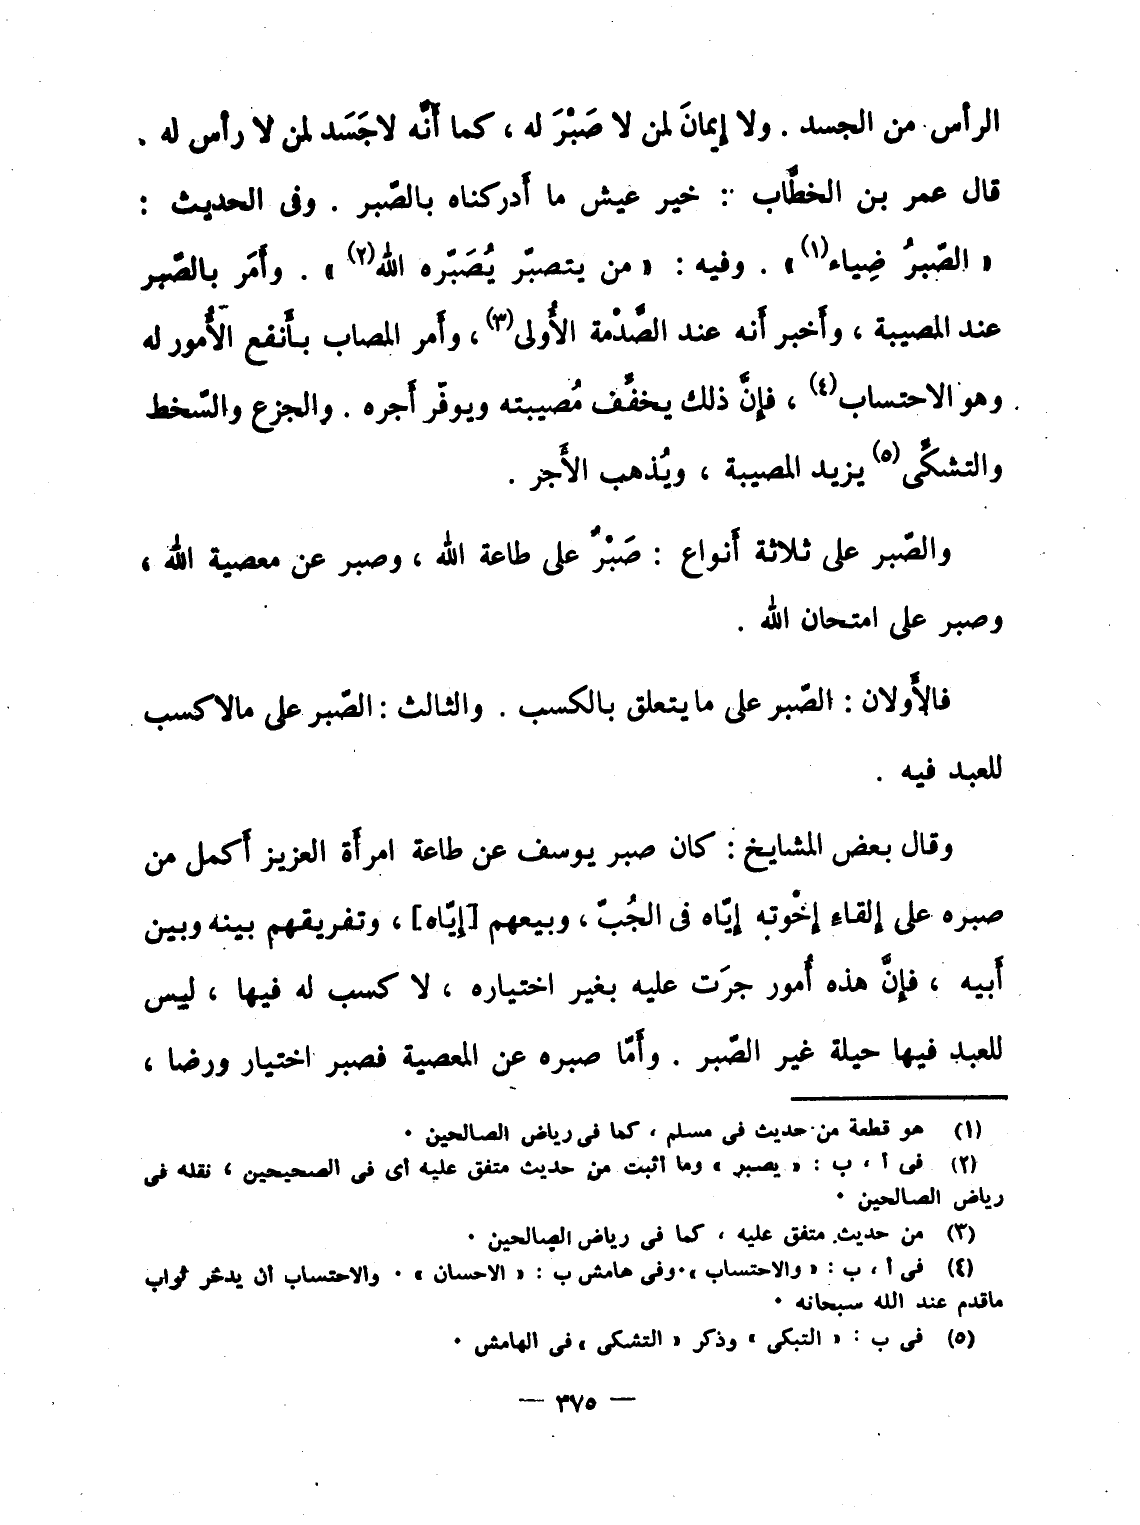 الرأس من الجسد . ولا إيمانَ لمن لا صَبْرَ له ، كما أَنَّه لاجَسَد لمن لا رأس له .
قال عمر بن الخطَّاب : خير عيش ما أَدركناه بالصّبر . وفى الحديث :
« الصّبرُ ضِياء(١)» . وفيه : « من يتصبّر يُصَبّره الله(٢) » . وأَمَر بالصّبر
عند المصيبة ، وأَخبر أَنه عند الصَّدْمة الأُولى(٣)، وأَمر المصاب بأَنفع الأُمور له
وهو الاحتساب(٤) ، فإِنَّ ذلك يخفَّف مُصيبته ويوفّر أَجره . والجزع والسّخط
والتشكِّى(٥) يزيد المصيبة ، ويُذهب الأَجر .
والصّبر على ثلاثة أَنواع : صَبْرٌ على طاعة الله ، وصبر عن معصية الله ،
وصبر على امتحان الله .
فالأَولان : الصّبر على مايتعلق بالكسب . والثالث : الصّبر على مالاكسب
للعبد فيه .
وقال بعض المشايخ : كان صبر يوسف عن طاعة امرأَة العزيز أَكمل من
صبره على إِلقاء إِخْوته إِيّاه فى الجُبّ ، وبيعهم [إِيّاه] ، وتفريقهم بينه وبين
أَبيه ، فإِنَّ هذه أُمور جرَت عليه بغير اختياره ، لا كسب له فيها ، ليس
للعبد فيها حيلة غير الصّبر . وأَمّا صبره عن المعصية فصبر اختيار ورضا ،
(١) هو قطعة من حديث فى مسلم ، كما فى رياض الصالحين ٠
(٢) فى أ ، ب : « يصبر » وما اثبت من حديث متفق عليه أى فى الصحيحين ، نقله فى
رياض الصالحين ٠
(٣) من حديث متفق عليه ، كما فى رياض الصالحين ٠
(٤) فى أ ، ب : « والاحتساب » ٠ وفى هامش ب : « الاحسان » ٠ والاحتساب أن يدخر ثواب
ماقدم عند الله سبحانه ٠
(٥) فى ب : « التبكى » وذكر « التشكى » فى الهامش ٠
— ٣٧٥ —